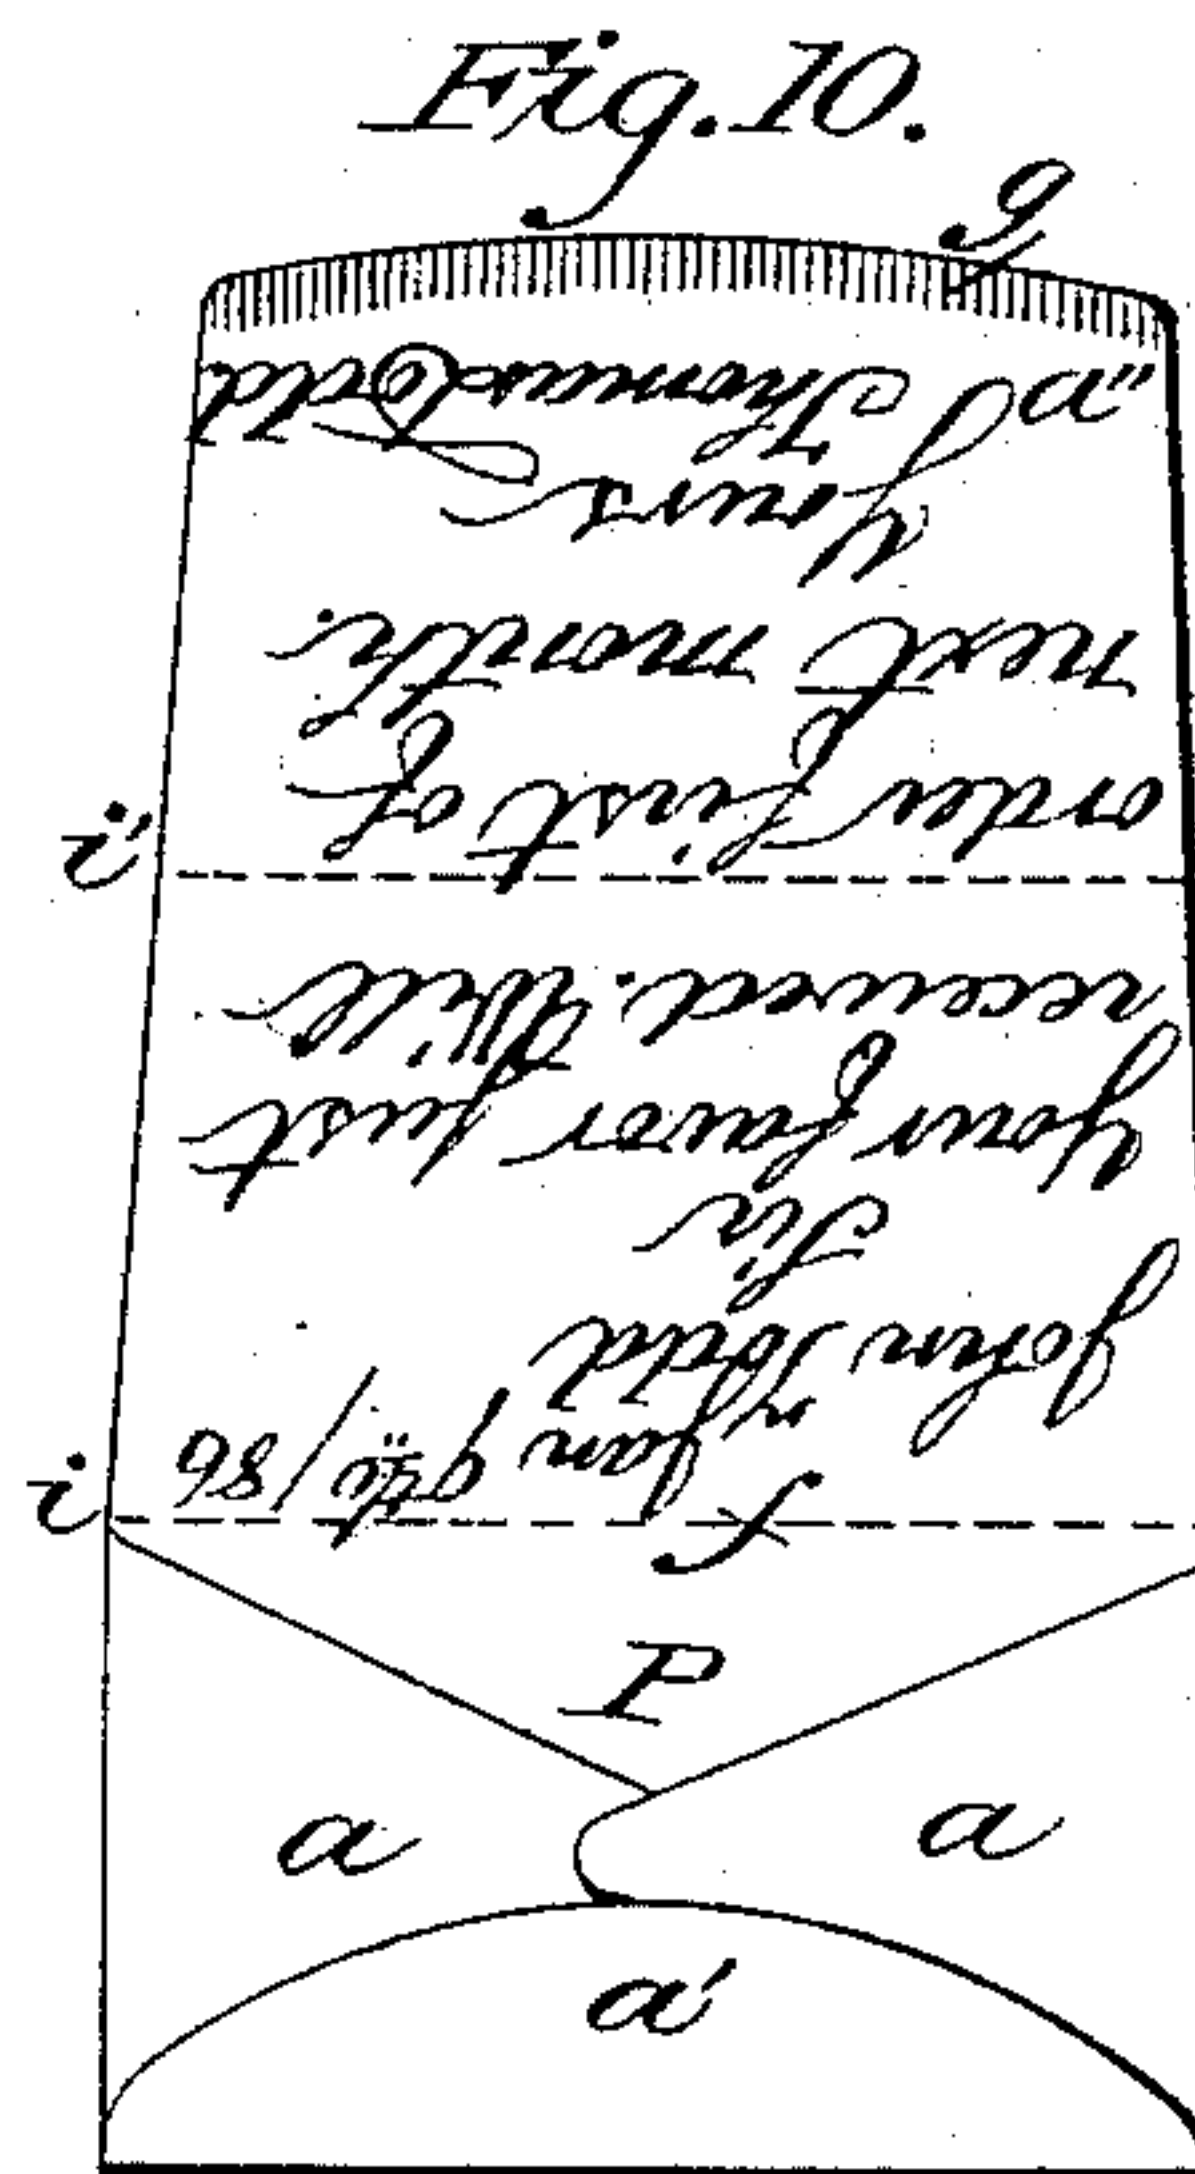 Fig. 10.
g
a"
Jan 9th /86
John Todd
Sir
Your favor just
received. Will
order first of
next month.
Yours
Thomas Todd
i'
i
f
P
a
a
a'